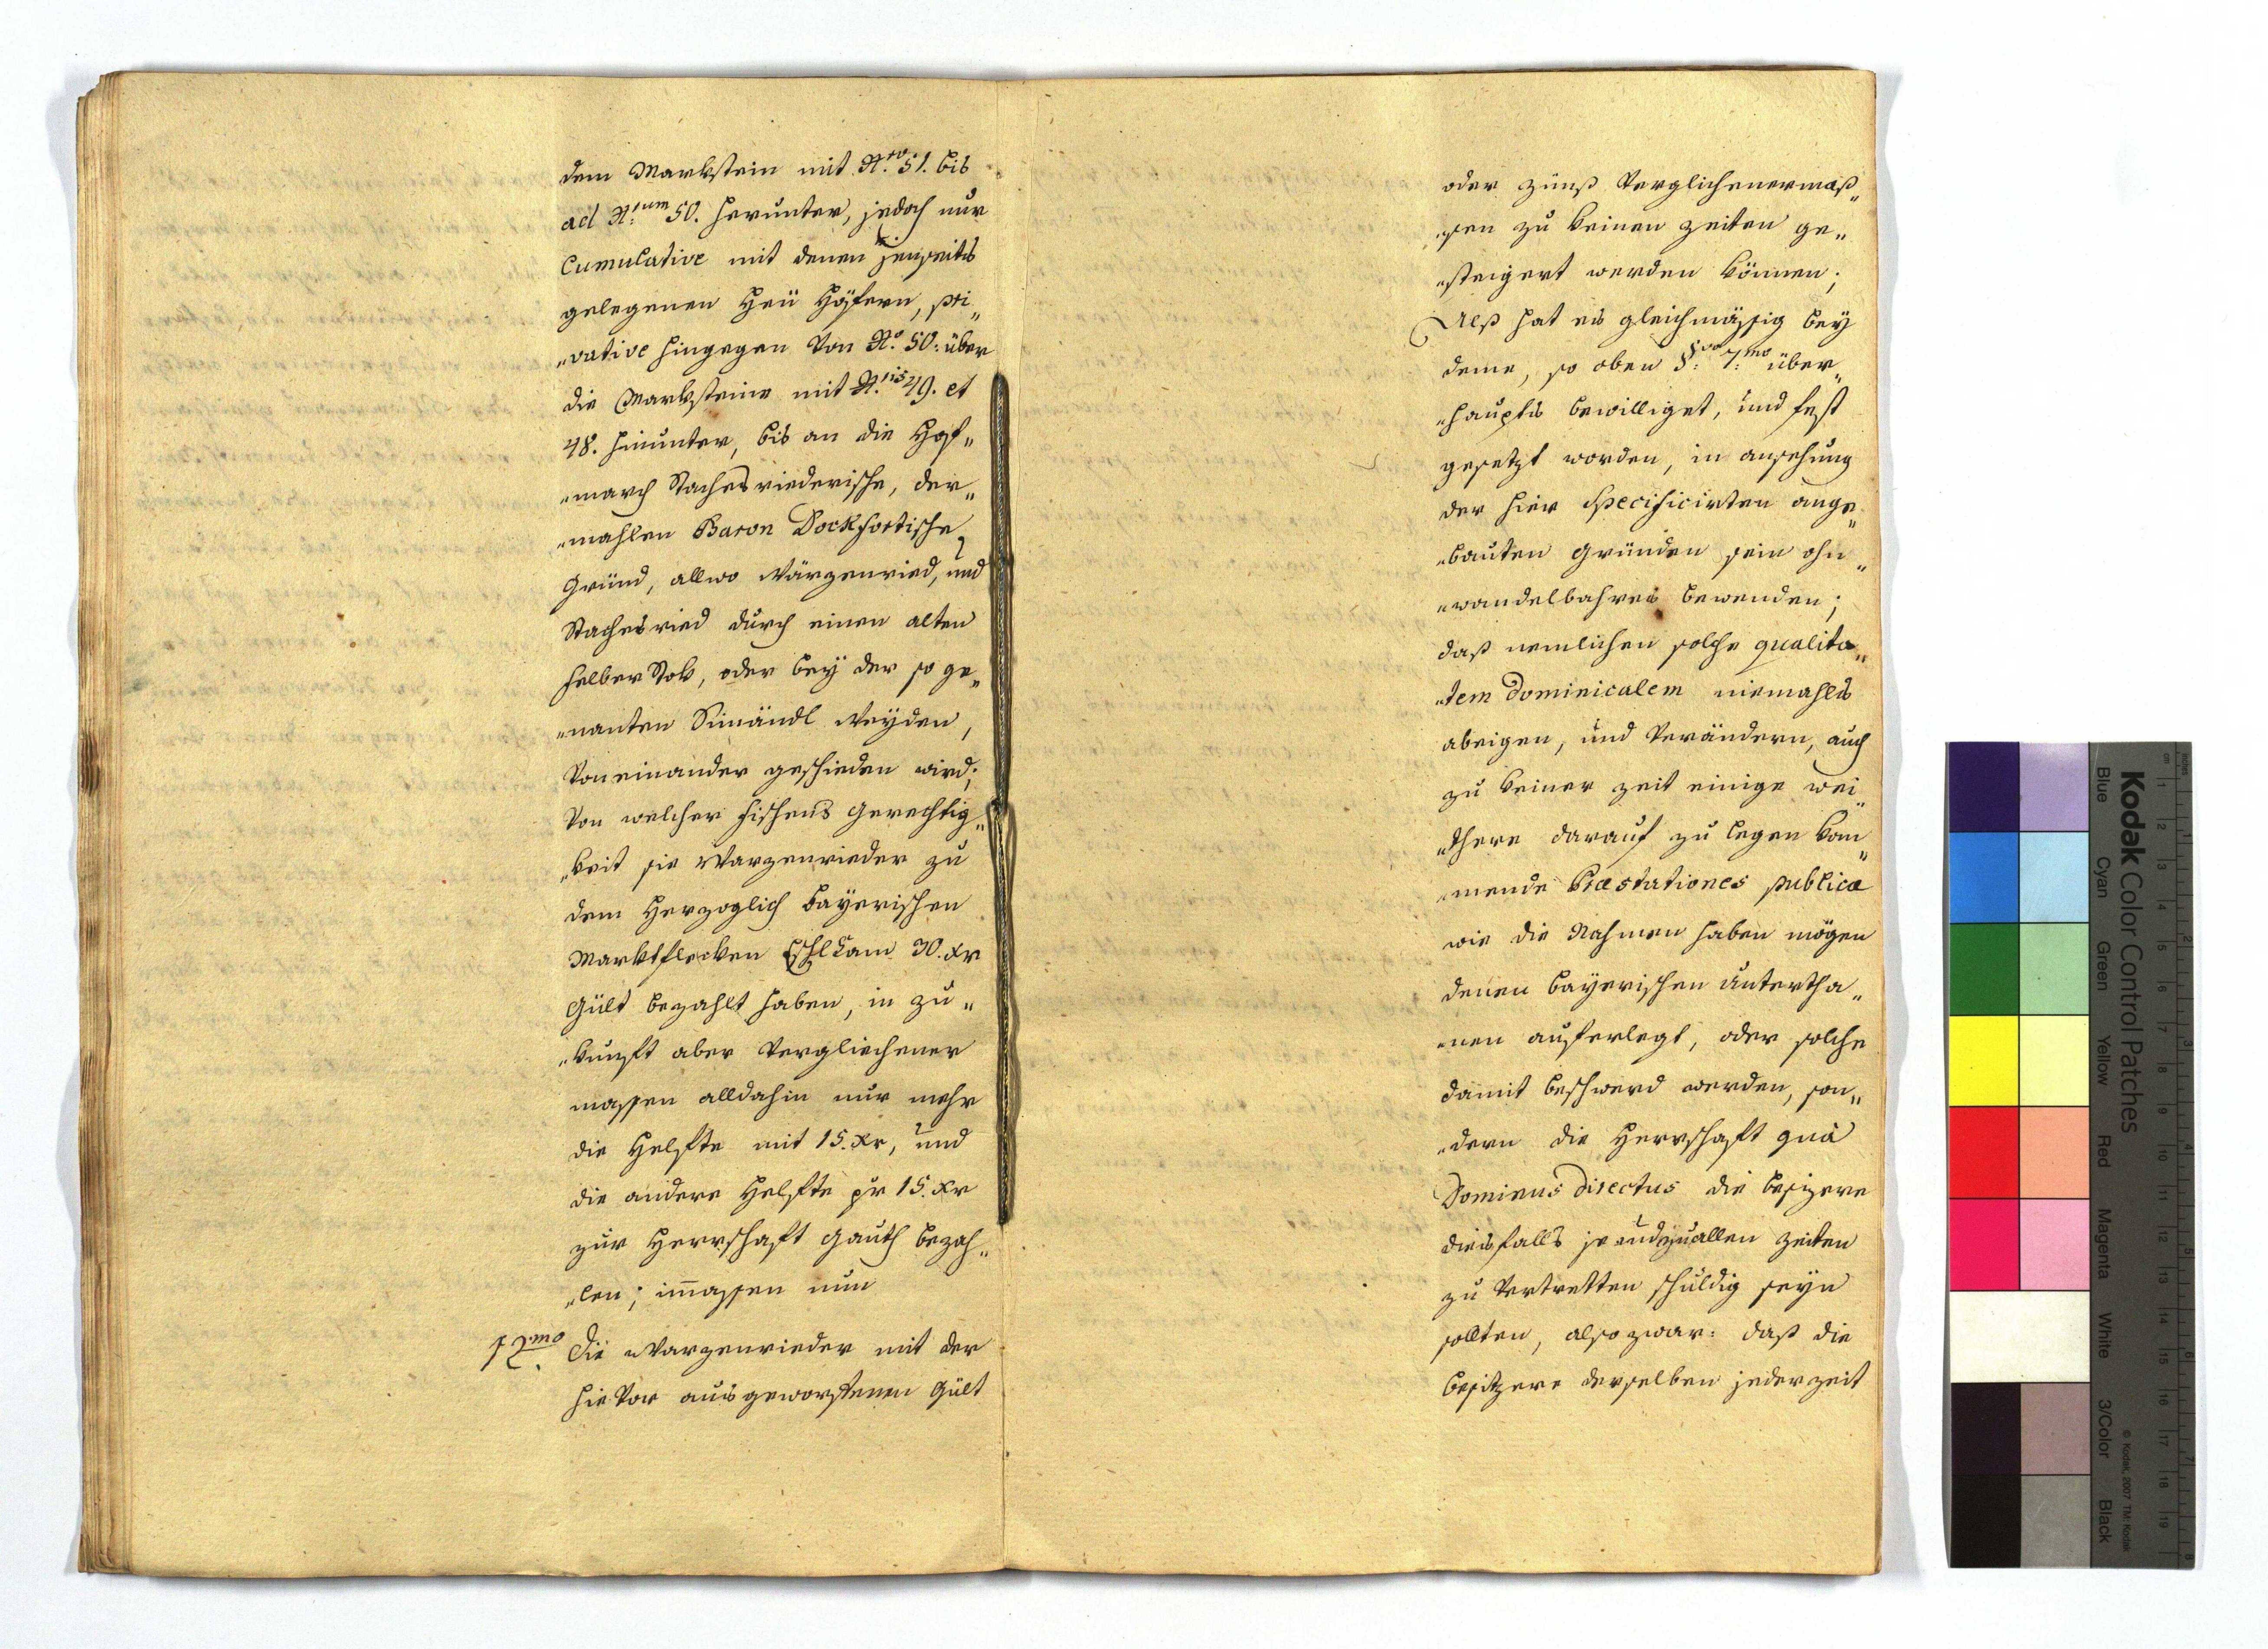 dem Markstein mit N.ro 51. bis
ad N.rum 50. herunter, jedoch nur
Cumulative mit denen jenseits
gelegenen Heü Höfern, pri„
„vative hingegen von No. 50. über
die Marksteine mit N.ris 49. et
48. hinunter, bis an die Hof„
„march Stachesriederische, der„
„mahlen Baron Dockfortische
Gründ, allwo Wärzenried, und
Stachesried durch einen alten
Felber Stok, oder beÿ der so ge„
„nanten Simändl Weÿden,
von einander geschieden wird;
Von welcher Fischens Gerechtig„
„keit sie Warzenrieder zu
dem Herzoglich baÿerischen
Marktflecken Eschlkam 30. xr
Gült bezahlt haben, in zu„
„kunft aber verglichener
massen alldahin nur mehr
die Helfte mit 15. xr, und
die andere Helfte pr 15. xr
zur Herrschaft Gauth bezah„
„len; immassen nun
12mo. Die Warzenrieder mit der
hievor ausgeworfenen Gült
oder Zünß verglichenermaß„
„sen zu keinen Zeiten ge„
„steigert werden können;
Alß hat es gleichmässig beÿ
deme, so oben §vo 7.mo über„
„haupts bewilliget, und fest
gesetzt worden, in ansehung
der hier specificirten ange„
„bauten Gründen sein ohn„
„wandelbahres bewenden;
daß nemlichen solche qualita„
„tem Dominicalem niemahls
abeigen, und verändern, auch
zu keiner Zeit einige wei„
„there darauf zu legen kom„
„mende Præstationes publicæ
wie die Nahmen haben mögen
denen baÿerischen Untertha„
„nen auferlegt, oder solche
damit beschwerd werden, son„
„dern die Herrschaft quà
Dominus Directus die besizere
diesfalls je und zu allen Zeiten
zu vertretten schuldig seÿn
sollten, also zwar: daß die
besitzere derselben jederzeit
Kodak Color Control Patches
Blue Cyan Green Yellow Red Magenta White 3/Color Black
© Kodak, 2007 TM: Kodak